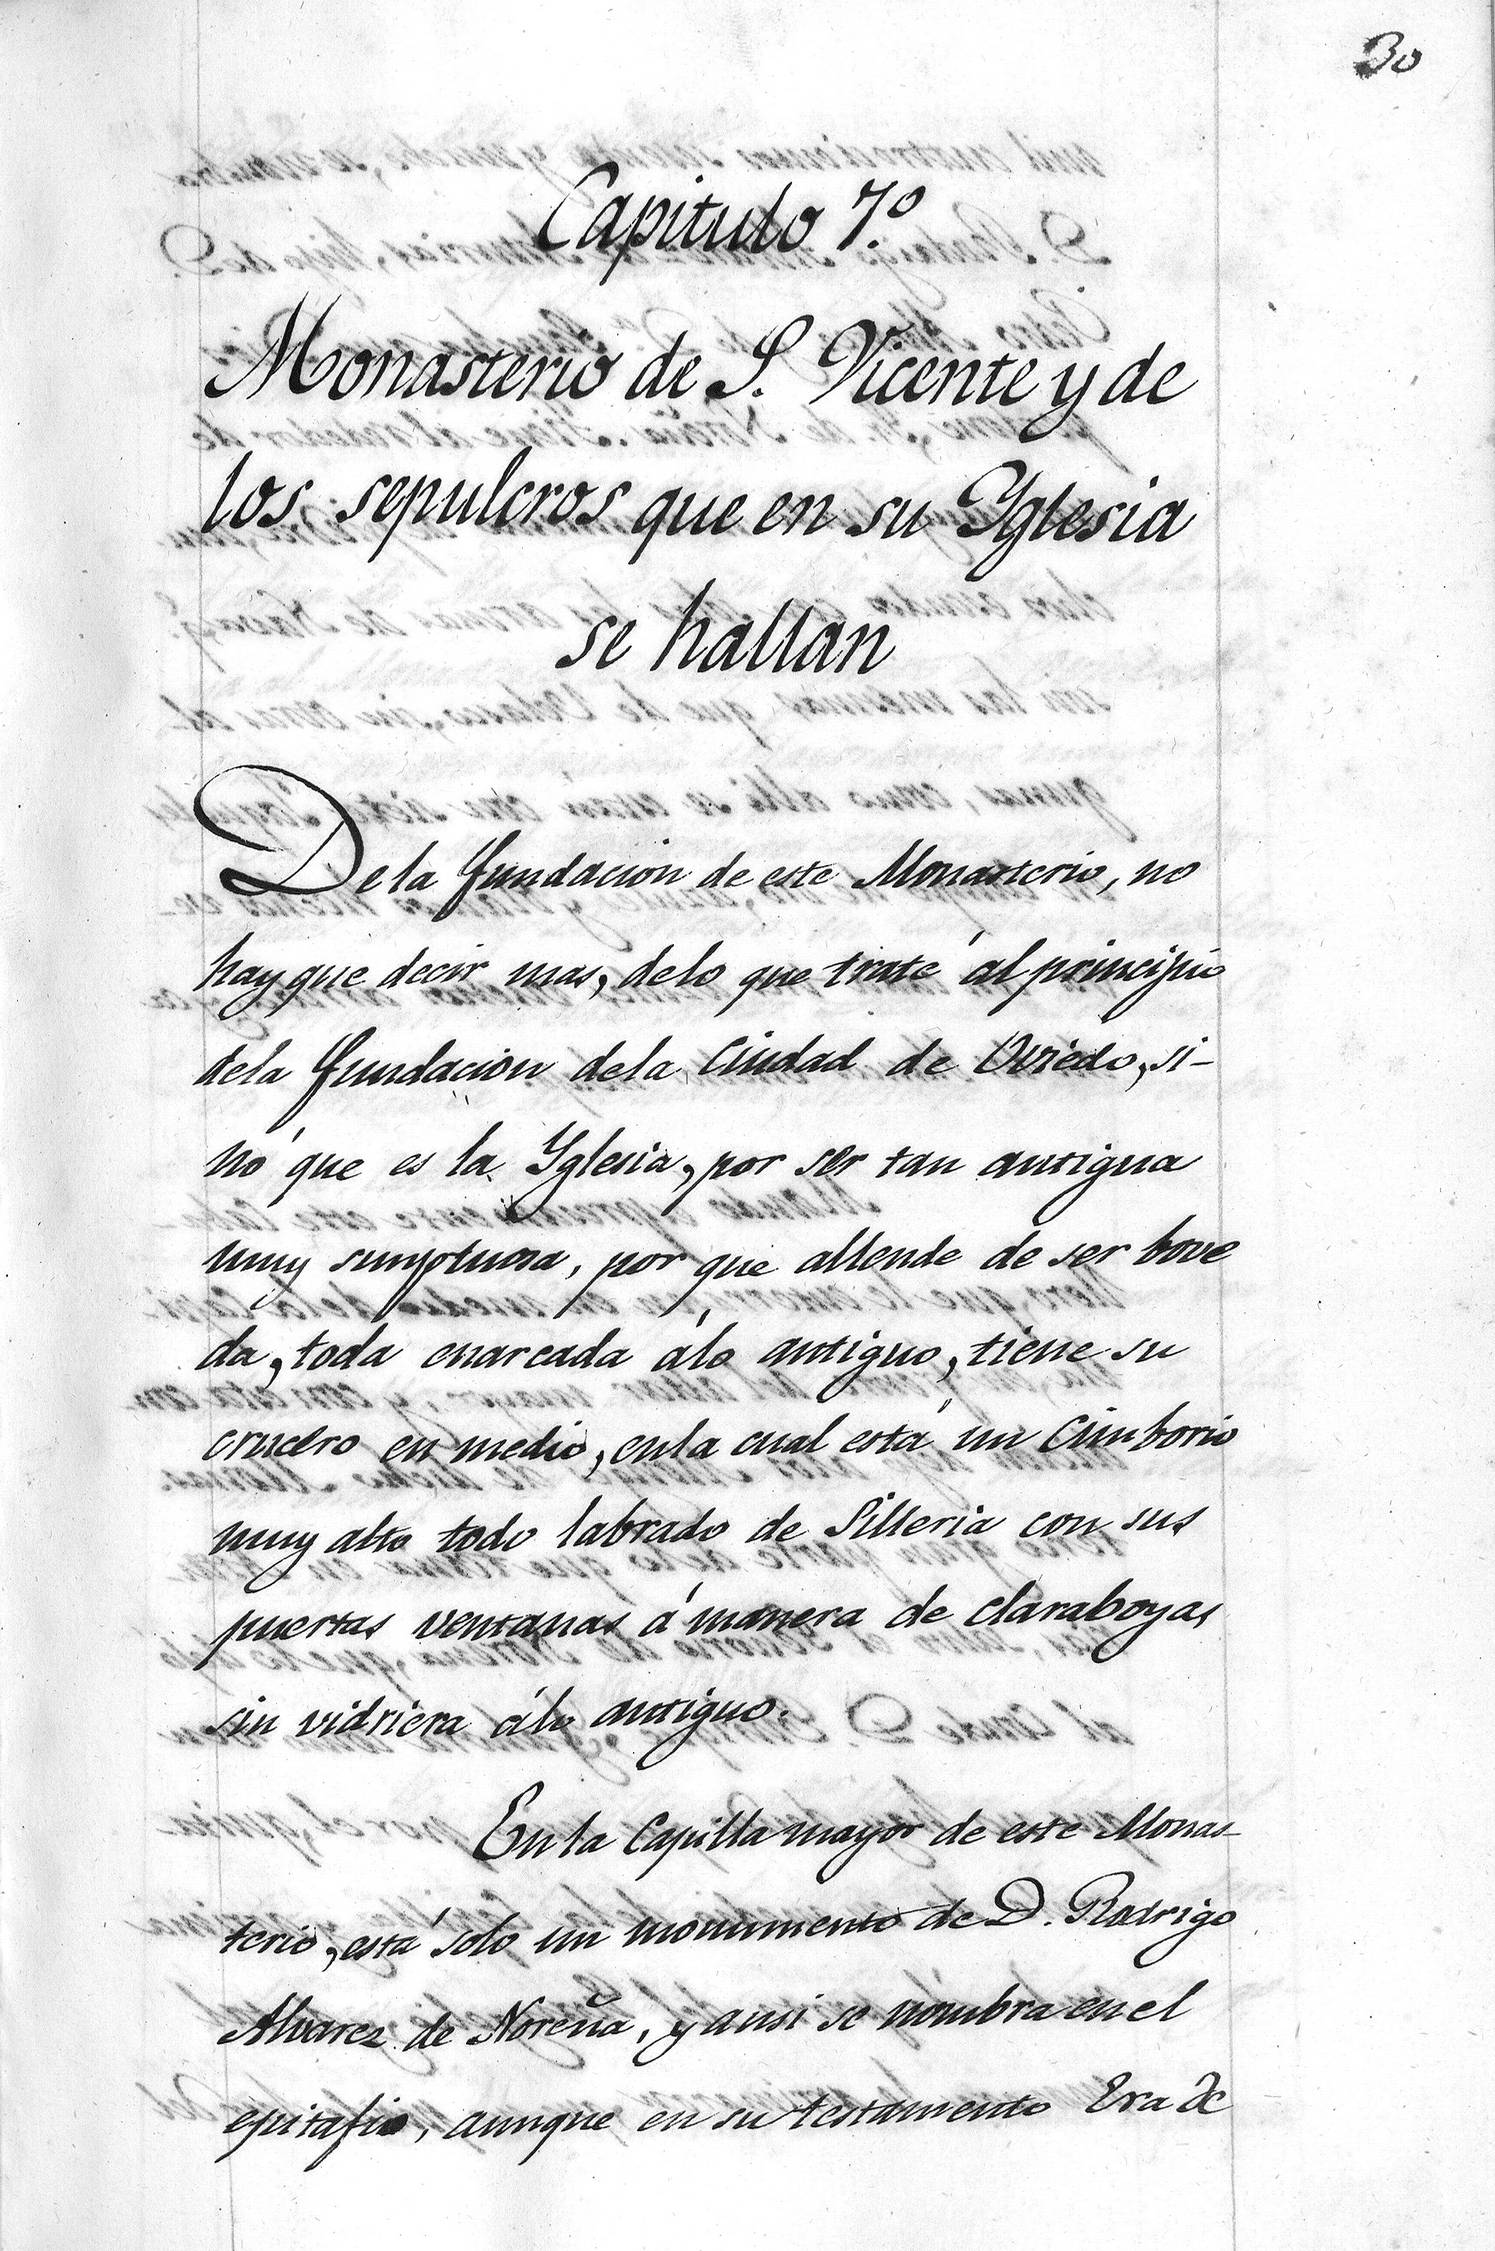 30
Capitulo 7.º
Monasterio de S. Vicente y de
los sepulcros que en su Yglesia
se hallan
De la fundacion de este Monasterio, no
hay que decir mas, delo que traté ál principio
dela fundacion dela Ciudad de Oviedo, si-
nó que es la Yglesia, por ser tan antigua
muy sumptuosa, por que allende de ser bove
da, toda enarcada álo antiguo, tiene su
crucero en medio, enla cual está un Cimborio
muy alto todo labrado de Silleria con sus
puertas ventanas á manera de claraboyas
sin vidriera álo antiguo.
En la Capilla mayor de este Monas-
terio, está solo un monumento de D. Rodrigo
Alvarez de Noreña, y ansi se nombra en el
epitafio, aunque en su testamento Era de